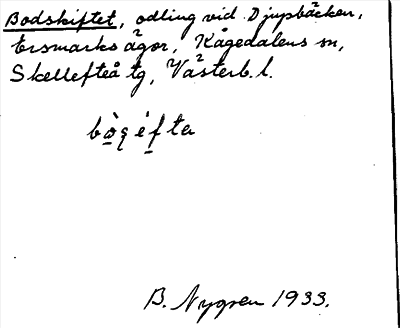 Bodskiftet, odling vid Djupbäcken,
Ersmarks ägor, Kågedalens sn,
Skellefteå tg, Västerb. l.
B. Nygren 1933.